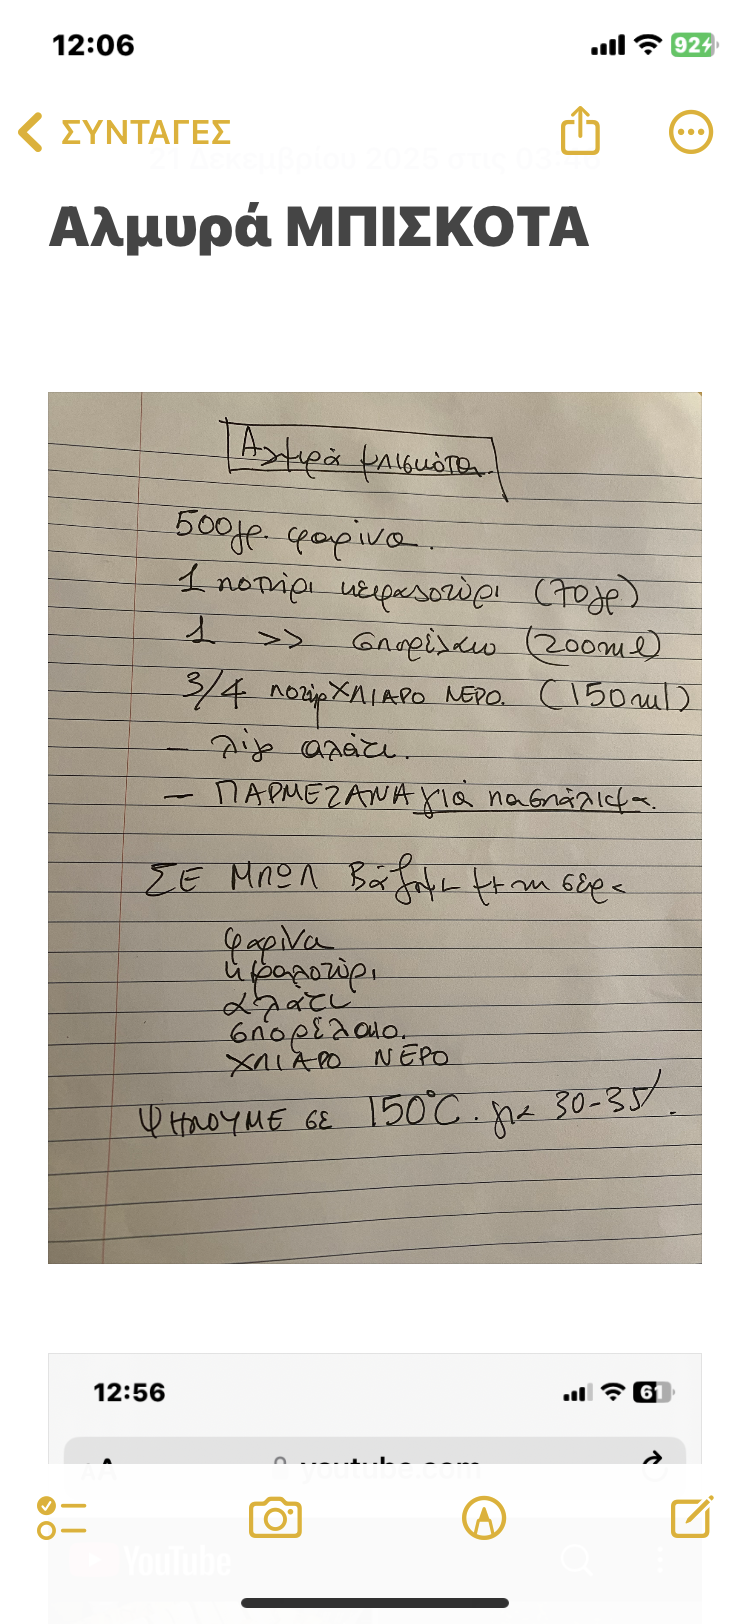 12:06
92
ΣΥΝΤΑΓΕΣ
21 Δεκεμβρίου 2025 στις 03:
Αλμυρά ΜΠΙΣΚΟΤΑ
Αλμιρά μπισκότα.
500γρ. φαρίνα.
1 ποτήρι κεφαλοτύρι (70γρ)
1 >> σπορέλαιο (200ml)
3/4 ποτήρ ΧΛΙΑΡΟ ΝΕΡΟ. (150ml)
– λίγο αλάτι.
– ΠΑΡΜΕΖΑΝΑ για πασπάλισμα.
ΣΕ ΜΠΩΛ Βάζουμε με τη σειρα
φαρίνα
κεφαλοτύρι
αλάτι
σπορέλαιο.
ΧΛΙΑΡΟ ΝΕΡΟ
ΨΗΝΟΥΜΕ σε 150°C. για 30-35'.
12:56
61
AA youtube.com
YouTube